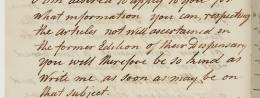 I am desired to apply to you for
what information you can, respecting
the articles not well ascertained in
the former Edition of their Dispensary
you will therefore be so kind as
wrote me as soon as may be on
that subject.